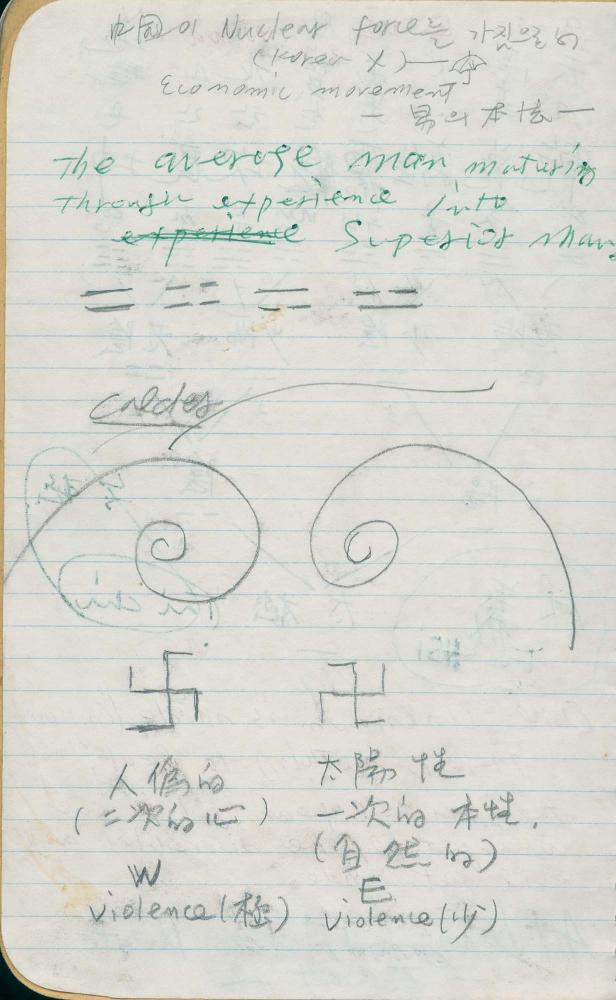 中國이 Nuclear force를 가짐으로써
(Korea X)
Economic movement
— 易의 本체 —
The average man maturing
through experience into
experience Superior Man
calder
Tai chi
人偽的 太陽性
(二次的 心) 一次的 本性.
(自然的)
W E
violence (極) violence (少)